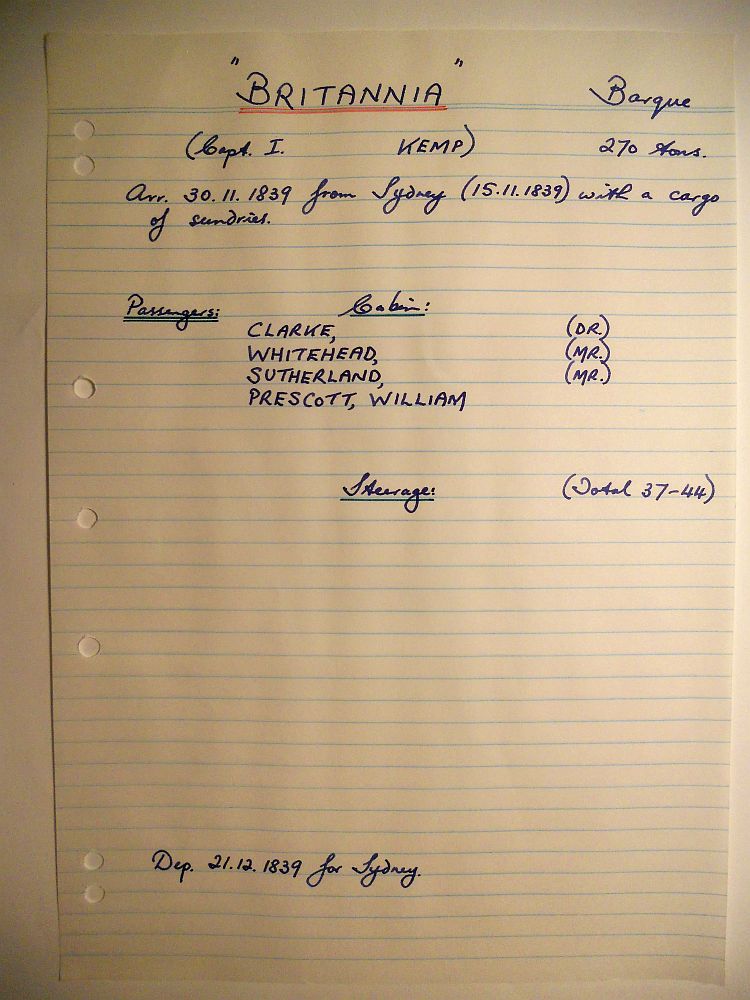 "BRITANNIA" Barque
(Capt. I. KEMP) 270 tons.
Arr. 30.11.1839 from Sydney (15.11.1839) with a cargo
of sundries.
Passengers: Cabin:
CLARKE, (DR.)
WHITEHEAD, (MR.)
SUTHERLAND, (MR.)
PRESCOTT, WILLIAM
Steerage: (Total 37-44)
Dep. 21.12.1839 for Sydney.